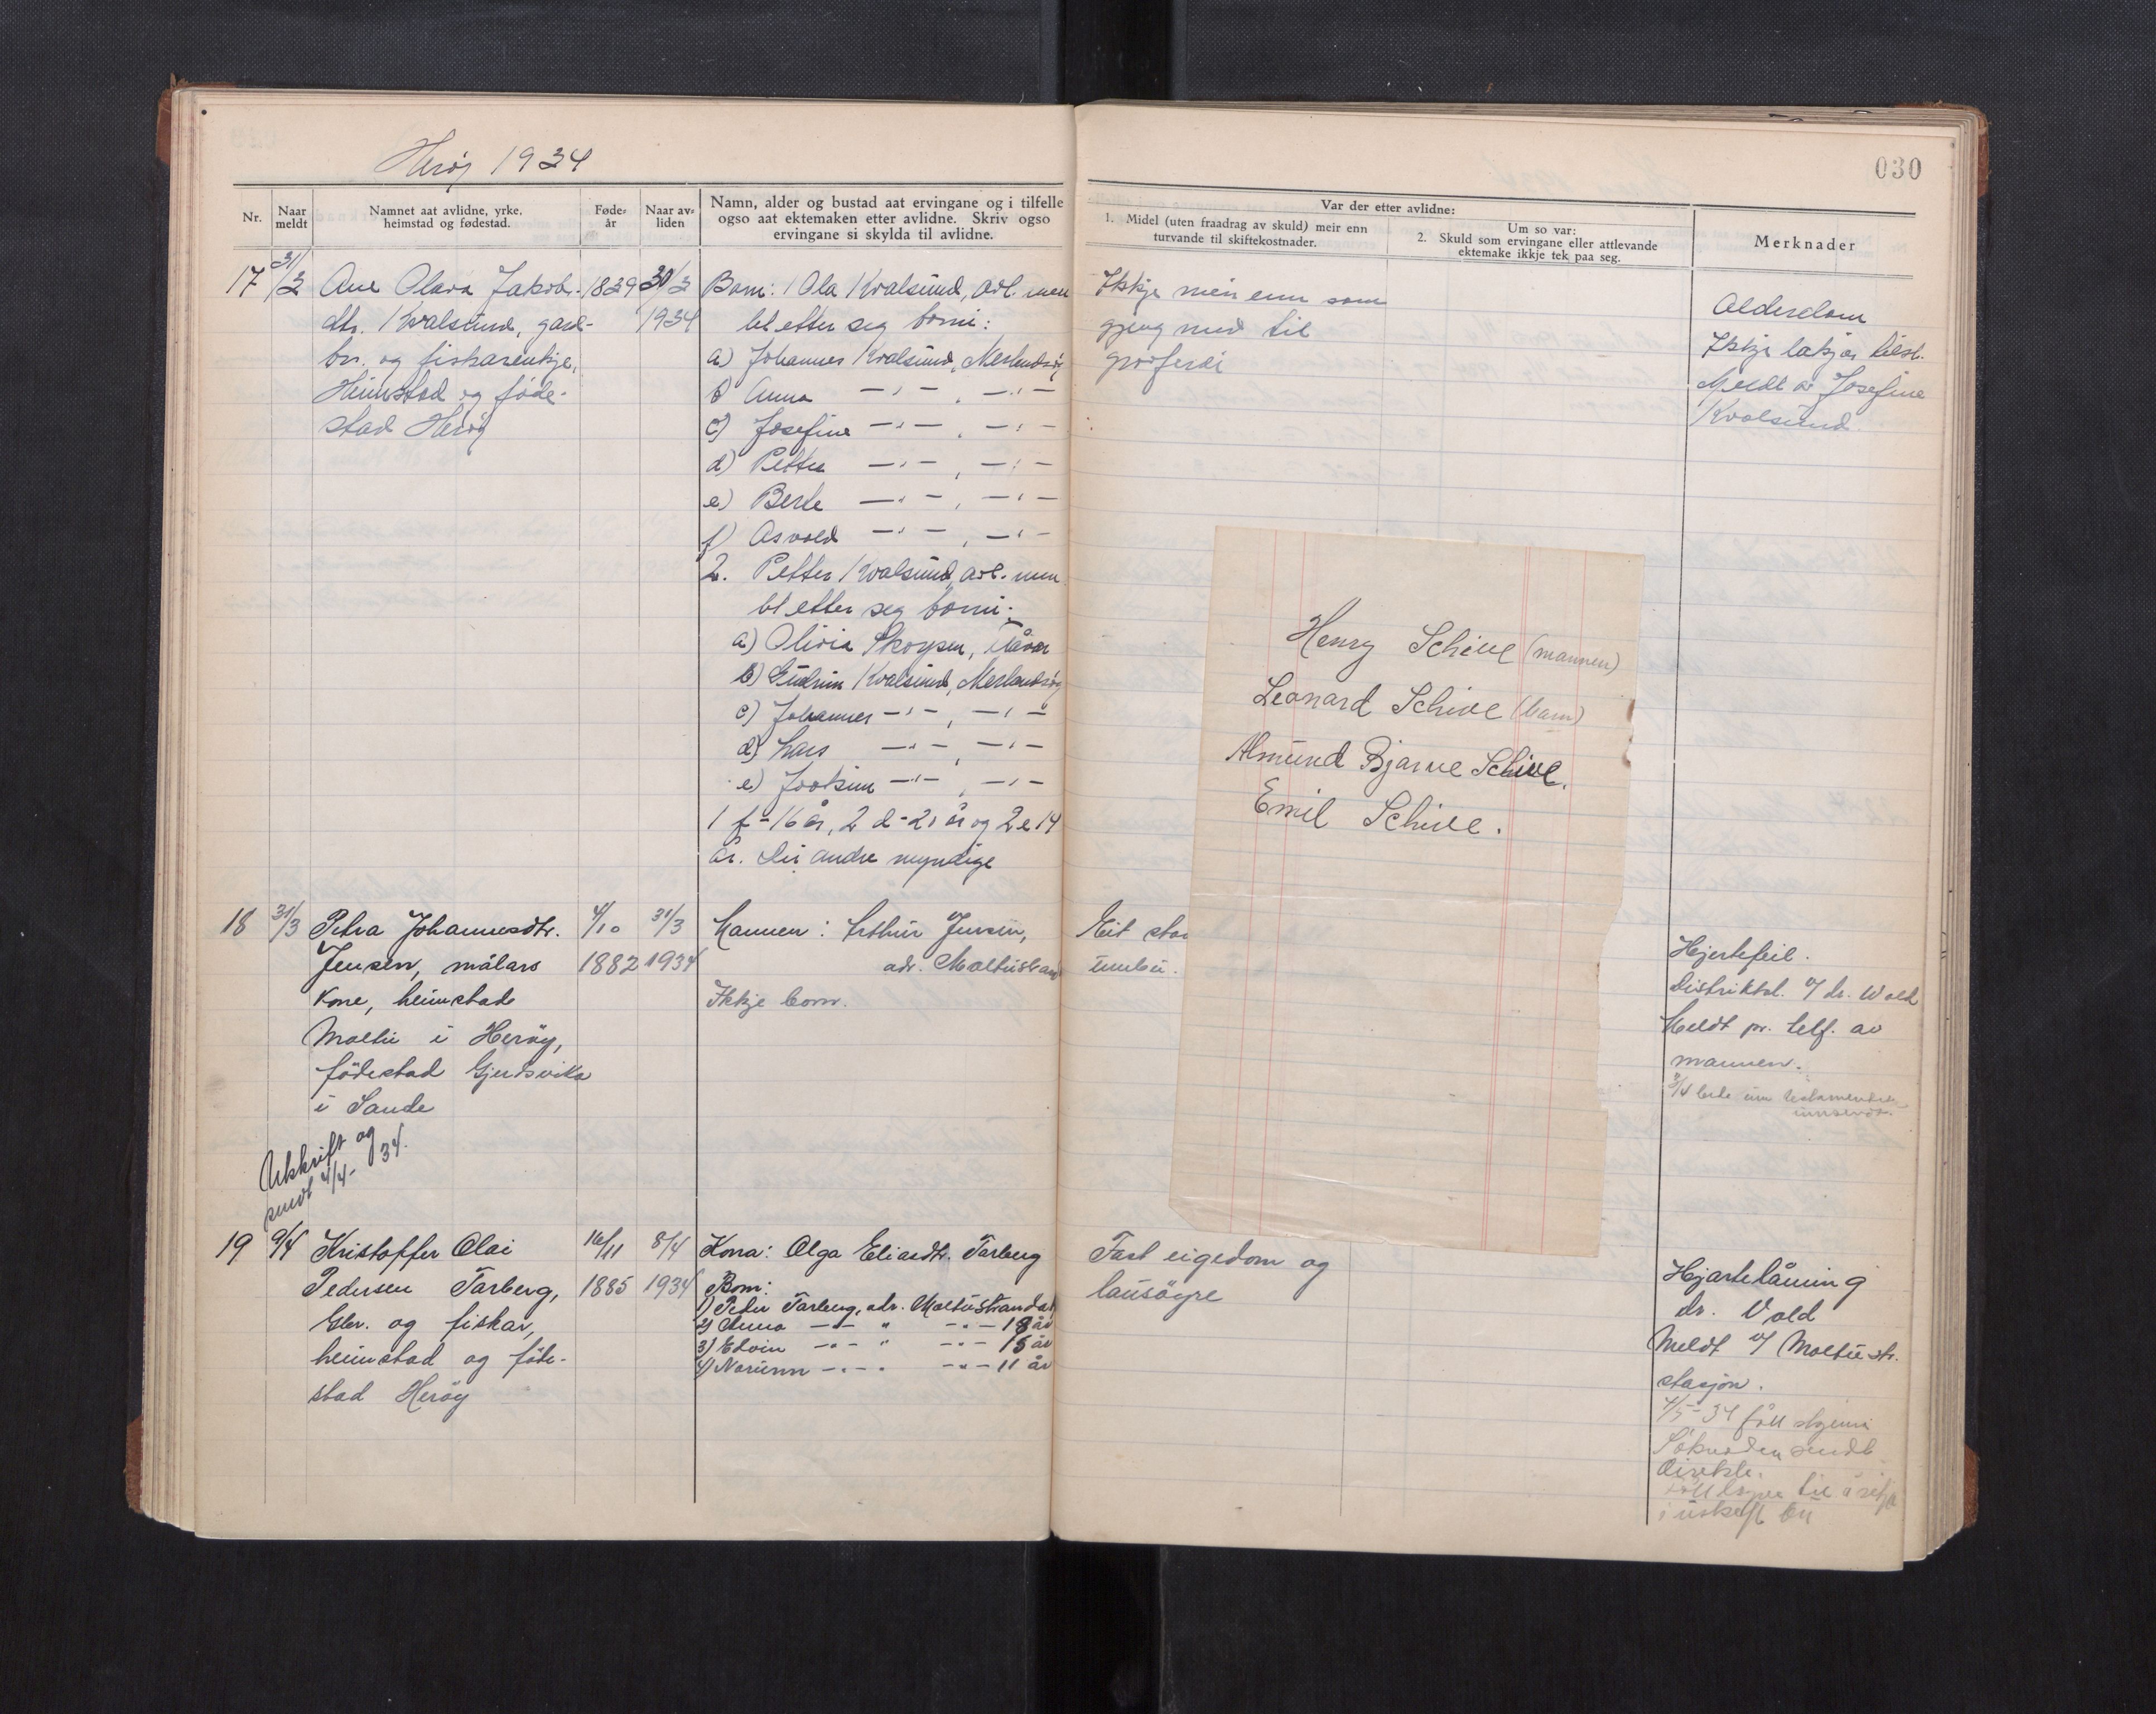 Herøy 1934
030
Nr.
Naar meldt
Namnet aat avlidne, yrke, heimstad og fødestad.
Føde-år
Naar av-liden
Namn, alder og bustad aat ervingane og i tilfelle ogso aat ektemaken etter avlidne. Skriv ogso ervingane si skylda til avlidne.
Var der etter avlidne:
1. Midel (uten fraadrag av skuld) meir enn turvande til skiftekostnader.
Um so var:
2. Skuld som ervingane eller attlevande ektemake ikkje tek paa seg.
Merknader
17 31/3 Ane Olava Jakobs- 1839 30/3
dtr. Kvalsund, gard- 1934
br. og fiskarenkje,
Heimstad og føde-
stad Herøy
Born: 1 Ola Kvalsund, avl. men
let etter seg borni:
a) Johannes Kvalsund, Merlandsøy
b) Anna — " — , — " —
c) Josefine — " — , — " —
d) Petter — " — , — " —
e) Berte — " — , — " —
f) Asvald — " — , — " —
2. Petter Kvalsund, avl. men
let etter seg borni:
a) Olivia Skorpen, Flåvær
b) Gudrun Kvalsund, Merlandsøy
c) Johannes — " — , — " —
d) Lars — " — , — " —
e) Joakim — " — , — " —
1 f - 16 år, 2 d - 21 år og 2 e 14
år. Dei andre myndige
Ikkje meir enn som
gjeng med til
gravferdi
Alderdom
Ikkje lækjar tilst.
Meldt av Josefine
Kvalsund.
Henry Schive (mannen)
Leonard Schive (barn)
Almund Bjarne Schive.
Emil Schive.
18 31/3 Petra Johannesdtr. 4/10 31/3
Jensen, målars 1882 1934
kone, heimstad
Moltu i Herøy,
fødestad Gjerdsvika
i Sande
Mannen: Arthur Jensen,
adr. Moltustrand
Ikkje born.
Eit
Hjertefeil.
Distriktsl. v/ dr. Wold
Meldt pr. telf. av
mannen.
Utskrift og
sendt 4/4- 34.
19 9/4 Kristoffer Olai 16/11 8/4
Pedersen Tarberg, 1885 1934
Gbr. og fiskar,
heimstad og føde-
stad Herøy
Kona: Olga Eliasdtr. Tarberg
Born:
1) Peder Tarberg, adr. Moltustranda
2) Anna — " — " — " — 18 år
3) Edvin — " — " — " — 15 år
4) Norunn — " — " — " — 11 år
Fast eigedom og
lausøyre
Hjartelåming
dr. Vold
Meldt v/ Moltustr.
stasjon.
4/5-34 fått skjema
Søknaden sendt
direkte.
i uskift bu